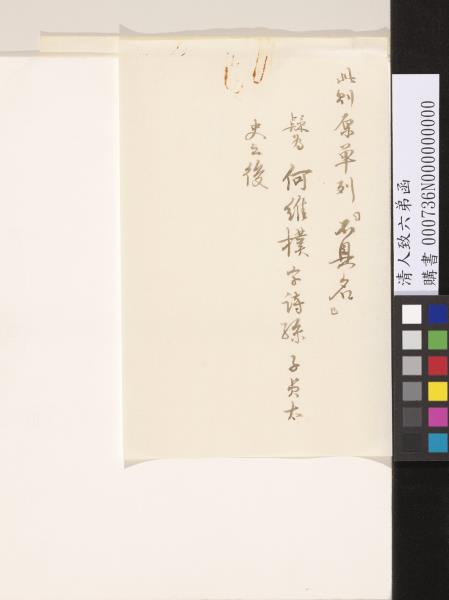 此則原單列「不具名」
疑為何維樸字詩孫子貞太
史之後
清人致六弟函
購書 000736N000000000